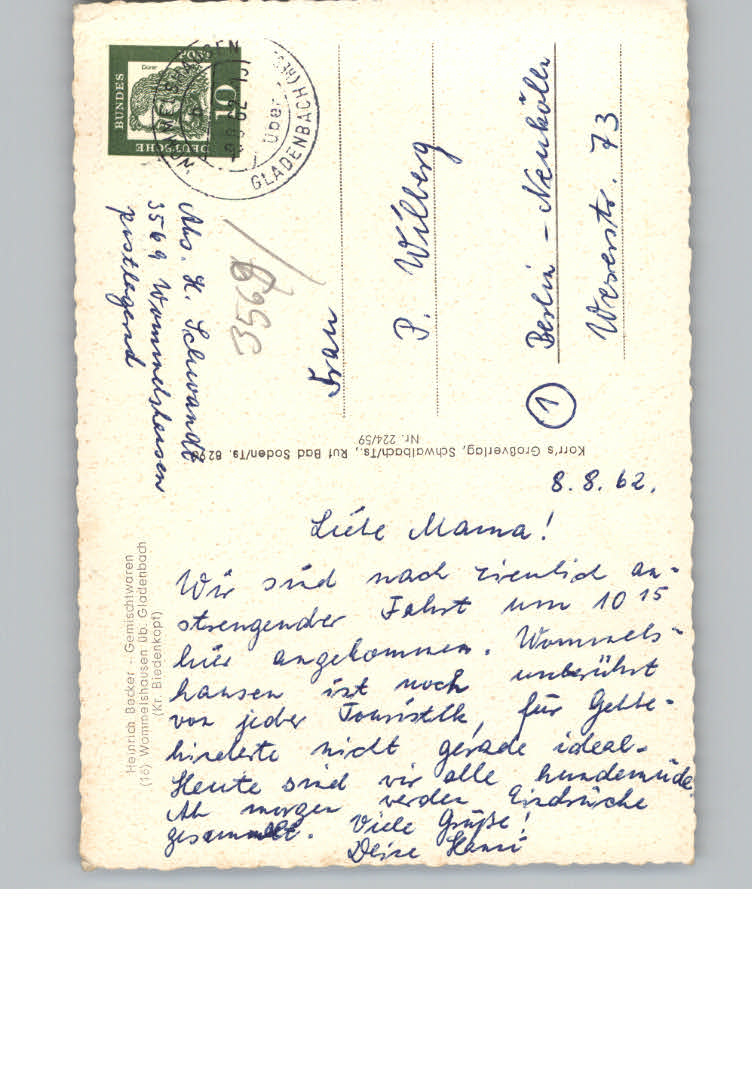 8. 8. 62.
Liebe Mama!
Wir sind nach ziemlich an-
strengender Fahrt um 10 15
hier angekommen. Wommels-
hausen ist noch unberührt
von jeder Touristik, für Gehbe-
hinderte nicht gerade ideal.
Heute sind wir alle hundemüde.
Ab morgen werden Eindrücke
gesammelt. Viele Grüße!
Deine Hanni
Heinrich Becker - Gemischtwaren
(16) Wommelshausen üb. Gladenbach
(Kr. Biedenkopf)
Korr's Großverlag, Schwalbach/Ts., Ruf Bad Soden/Ts. 8298
Nr. 224/59
Abs. H. Schwandt
3569 Wommelshausen
postlagernd
3569
DEUTSCHE
BUNDES
10
Dürer
über
GLADENBACH
Frau
P. Wilberg
1
Berlin - Neukölln
Weserstr. 73